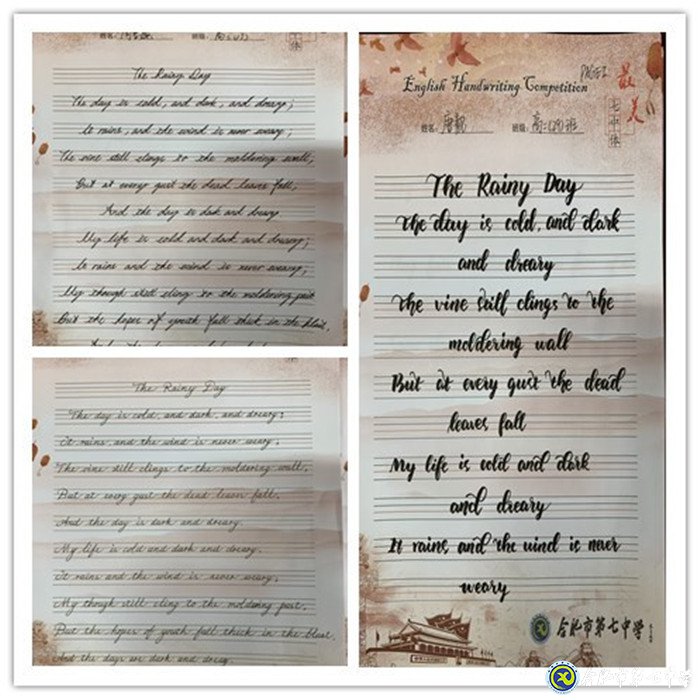 The Rainy Day
The day is cold, and dark, and dreary;
It rains, and the wind is never weary;
The vine still clings to the moldering wall,
But at every gust the dead leaves fall,
And the day is dark and dreary
My life is cold and dark and dreary;
It rains and the wind is never weary;
My though still cling to the moldering past
But the hopes of youth fall thick in the blast,
The Rainy Day
The day is cold, and dark, and dreary;
It rains, and the wind is never weary;
The vine still clings to the moldering wall,
But at every gust the dead leaves fall.
And the day is dark and dreary.
My life is cold and dark and dreary.
It rains and the wind is never weary;
My though still cling to the moldering past,
But the hopes of youth fall thick in the blast
And the days are dark and dreary.
PAGE1
最美
English Handwriting Competition
七中体
姓名: 班级: 高一(19)班
The Rainy Day
The day is cold, and dark
and dreary
The vine still clings to the
moldering wall
But at every gust the dead
leaves fall
My life is cold and dark
and dreary
It rains and the wind is never
weary
合肥市第七中学